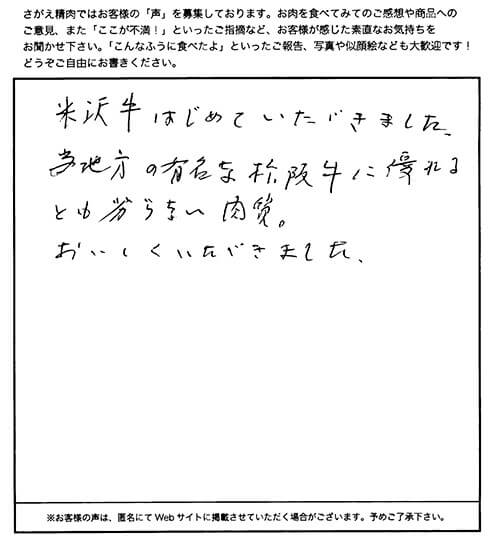 さがえ精肉ではお客様の「声」を募集しております。お肉を食べてみてのご感想や商品への
ご意見、また「ここが不満！」といったご指摘など、お客様が感じた素直なお気持ちを
お聞かせ下さい。「こんなふうに食べたよ」といったご報告、写真や似顔絵なども大歓迎です！
どうぞご自由にお書きください。
米沢牛はじめていただきました、
当地方の有名な松阪牛に優れる
とも劣らない肉質。
おいしくいただきました、
※お客様の声は、匿名にてWebサイトに掲載させていただく場合がございます。予めご了承下さい。